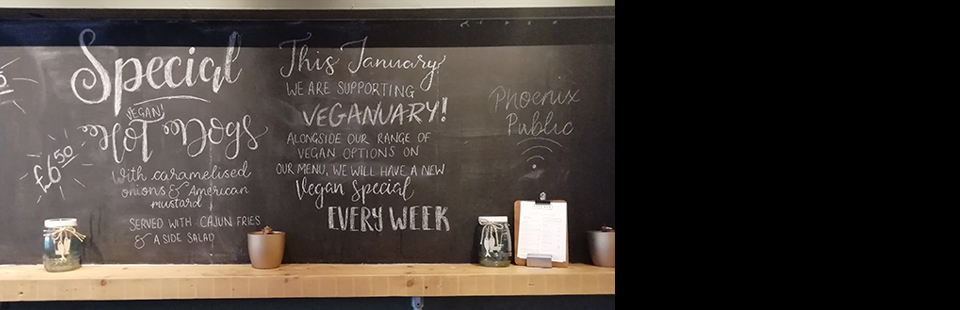 Special
VEGAN!
Hot Dogs
£6.50
With caramelised
onions & American
mustard
SERVED WITH CAJUN FRIES
& A SIDE SALAD
This January
WE ARE SUPPORTING
VEGANUARY!
ALONGSIDE OUR RANGE OF
VEGAN OPTIONS ON
OUR MENU, WE WILL HAVE A NEW
Vegan Special
EVERY WEEK
Phoenix
Public